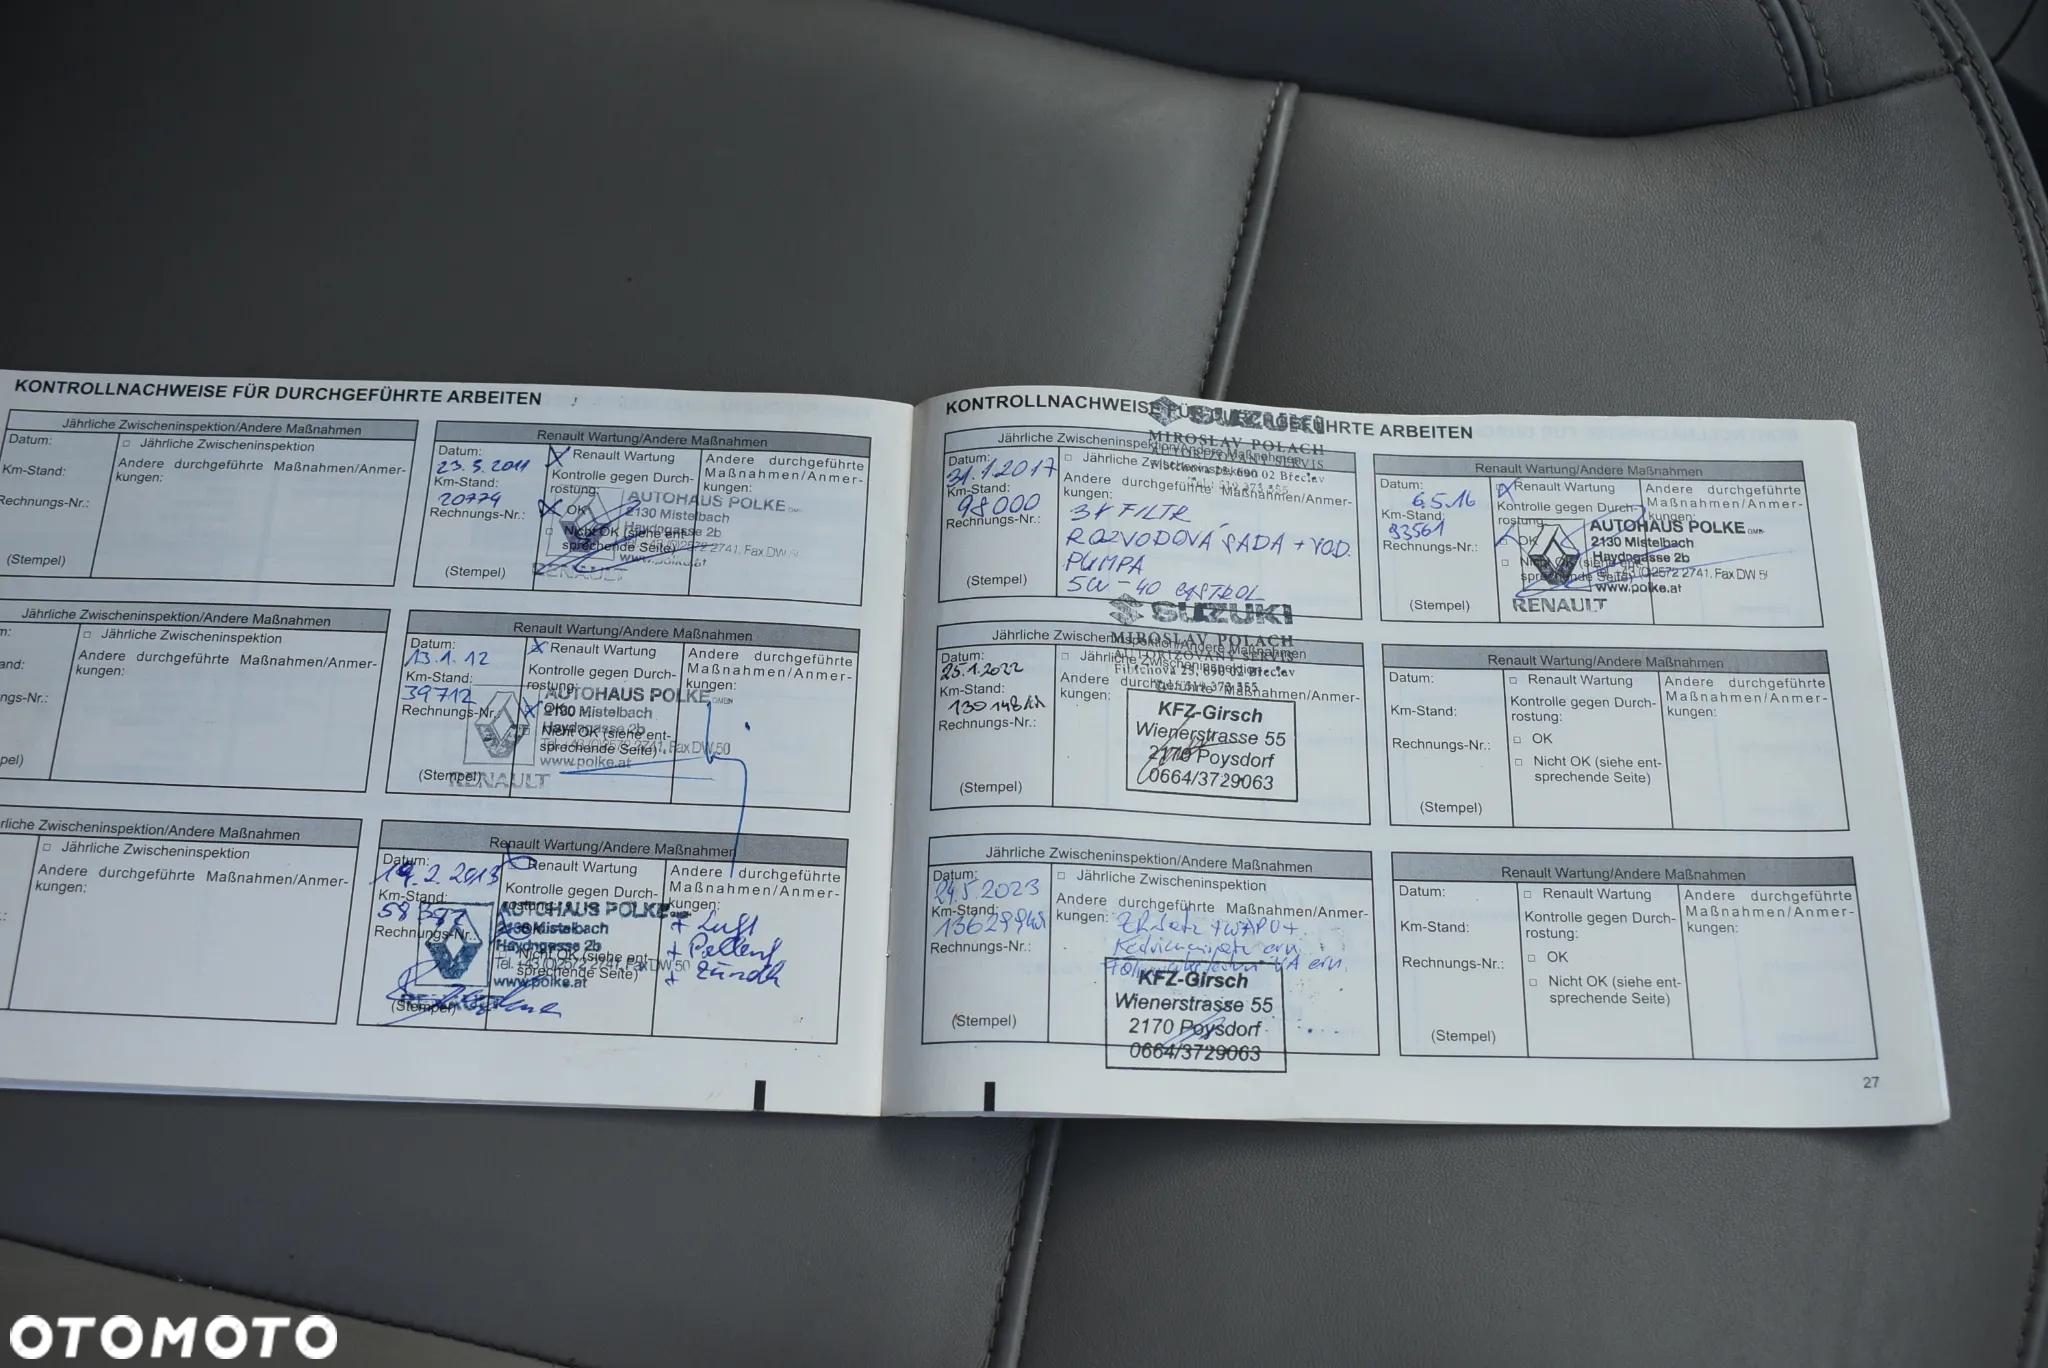 KONTROLLNACHWEISE FÜR DURCHGEFÜHRTE ARBEITEN
Jährliche Zwischeninspektion/Andere Maßnahmen
Datum:
□ Jährliche Zwischeninspektion
Km-Stand:
Andere durchgeführte Maßnahmen/Anmer-
kungen:
Rechnungs-Nr.:
(Stempel)
Renault Wartung/Andere Maßnahmen
Datum:
23.5.2011
Km-Stand:
20774
Rechnungs-Nr.:
(Stempel)
Renault Wartung
Kontrolle gegen Durch-
rostung:
OK
Nicht OK (siehe ent-
sprechende Seite)
Andere durchgeführte
Maßnahmen/Anmer-
kungen:
AUTOHAUS POLKE
2130 Mistelbach
Haydngasse 2b
2741, Fax DW 50
www.polke.at
RENAULT
Jährliche Zwischeninspektion/Andere Maßnahmen
□ Jährliche Zwischeninspektion
Andere durchgeführte Maßnahmen/Anmer-
kungen:
Renault Wartung/Andere Maßnahmen
Datum:
13.1.12
Km-Stand:
39712
Rechnungs-Nr.
(Stempel)
Renault Wartung
Kontrolle gegen Durch-
rostung:
OK
Nicht OK (siehe ent-
sprechende Seite)
Andere durchgeführte
Maßnahmen/Anmer-
kungen:
AUTOHAUS POLKE GMBH
2130 Mistelbach
Haydngasse 2b
Tel. +43 (0)2572 2741, Fax DW 50
www.polke.at
RENAULT
Zwischeninspektion/Andere Maßnahmen
□ Jährliche Zwischeninspektion
Andere durchgeführte Maßnahmen/Anmer-
kungen:
Renault Wartung/Andere Maßnahmen
Datum:
19.2.2013
Km-Stand:
Rechnungs-Nr.:
(Stempel)
Renault Wartung
Kontrolle gegen Durch-
rostung:
Nicht OK (siehe ent-
sprechende Seite)
Andere durchgeführte
Maßnahmen/Anmer-
kungen:
+ Luft
+ Pollenf
+ Zündk
AUTOHAUS POLKE
2130 Mistelbach
Haydngasse 2b
Tel. +43 (0)2572 2741, Fax DW 50
www.polke.at
KONTROLLNACHWEISE FÜR DURCHGEFÜHRTE ARBEITEN
SUZUKI
MIROSLAV POLACH
AUTORIZOVANÝ SERVIS
690 02 Břeclav
Jährliche Zwischeninspektion/Andere Maßnahmen
Datum:
31.1.2017
Km-Stand:
98000
Rechnungs-Nr.:
(Stempel)
□ Jährliche Zwischeninspektion
Andere durchgeführte Maßnahmen/Anmer-
kungen:
3x FILTR,
ROZVODOVÁ SADA + VOD.
PUMPA
5W-40 CASTROL
Renault Wartung/Andere Maßnahmen
Datum:
6.5.16
Km-Stand:
93561
Rechnungs-Nr.:
(Stempel)
Renault Wartung
Kontrolle gegen Durch-
rostung:
OK
Nicht OK (siehe ent-
sprechende Seite)
Andere durchgeführte
Maßnahmen/Anmer-
kungen:
AUTOHAUS POLKE GMBH
2130 Mistelbach
Haydngasse 2b
Tel. +43 (0)2572 2741, Fax DW 50
www.polke.at
RENAULT
SUZUKI
MIROSLAV POLACH
AUTORIZOVANÝ SERVIS
690 02 Břeclav
Jährliche Zwischeninspektion/Andere Maßnahmen
Datum:
25.1.2022
Km-Stand:
130148
Rechnungs-Nr.:
(Stempel)
□ Jährliche Zwischeninspektion
Andere durchgeführte Maßnahmen/Anmer-
kungen:
KFZ-Girsch
Wienerstrasse 55
2170 Poysdorf
0664/3729063
Renault Wartung/Andere Maßnahmen
Datum:
Km-Stand:
Rechnungs-Nr.:
(Stempel)
□ Renault Wartung
Kontrolle gegen Durch-
rostung:
□ OK
□ Nicht OK (siehe ent-
sprechende Seite)
Andere durchgeführte
Maßnahmen/Anmer-
kungen:
Jährliche Zwischeninspektion/Andere Maßnahmen
Datum:
24.5.2023
Km-Stand:
Rechnungs-Nr.:
(Stempel)
□ Jährliche Zwischeninspektion
Andere durchgeführte Maßnahmen/Anmer-
kungen:
KFZ-Girsch
Wienerstrasse 55
2170 Poysdorf
0664/3729063
Renault Wartung/Andere Maßnahmen
Datum:
Km-Stand:
Rechnungs-Nr.:
(Stempel)
□ Renault Wartung
Kontrolle gegen Durch-
rostung:
□ OK
□ Nicht OK (siehe ent-
sprechende Seite)
Andere durchgeführte
Maßnahmen/Anmer-
kungen:
27
OTOMOTO